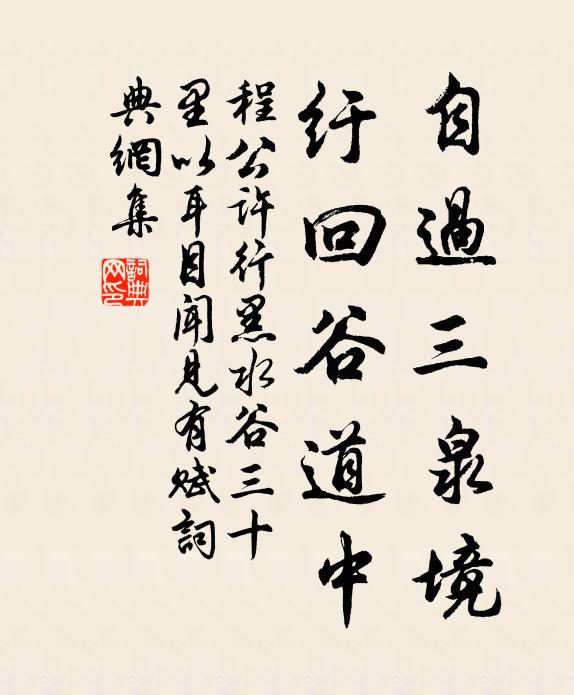 自過三泉境
紆回谷道中
程公許行黑水谷三十
里以耳目聞見有賦詞
典網集
詞典網印